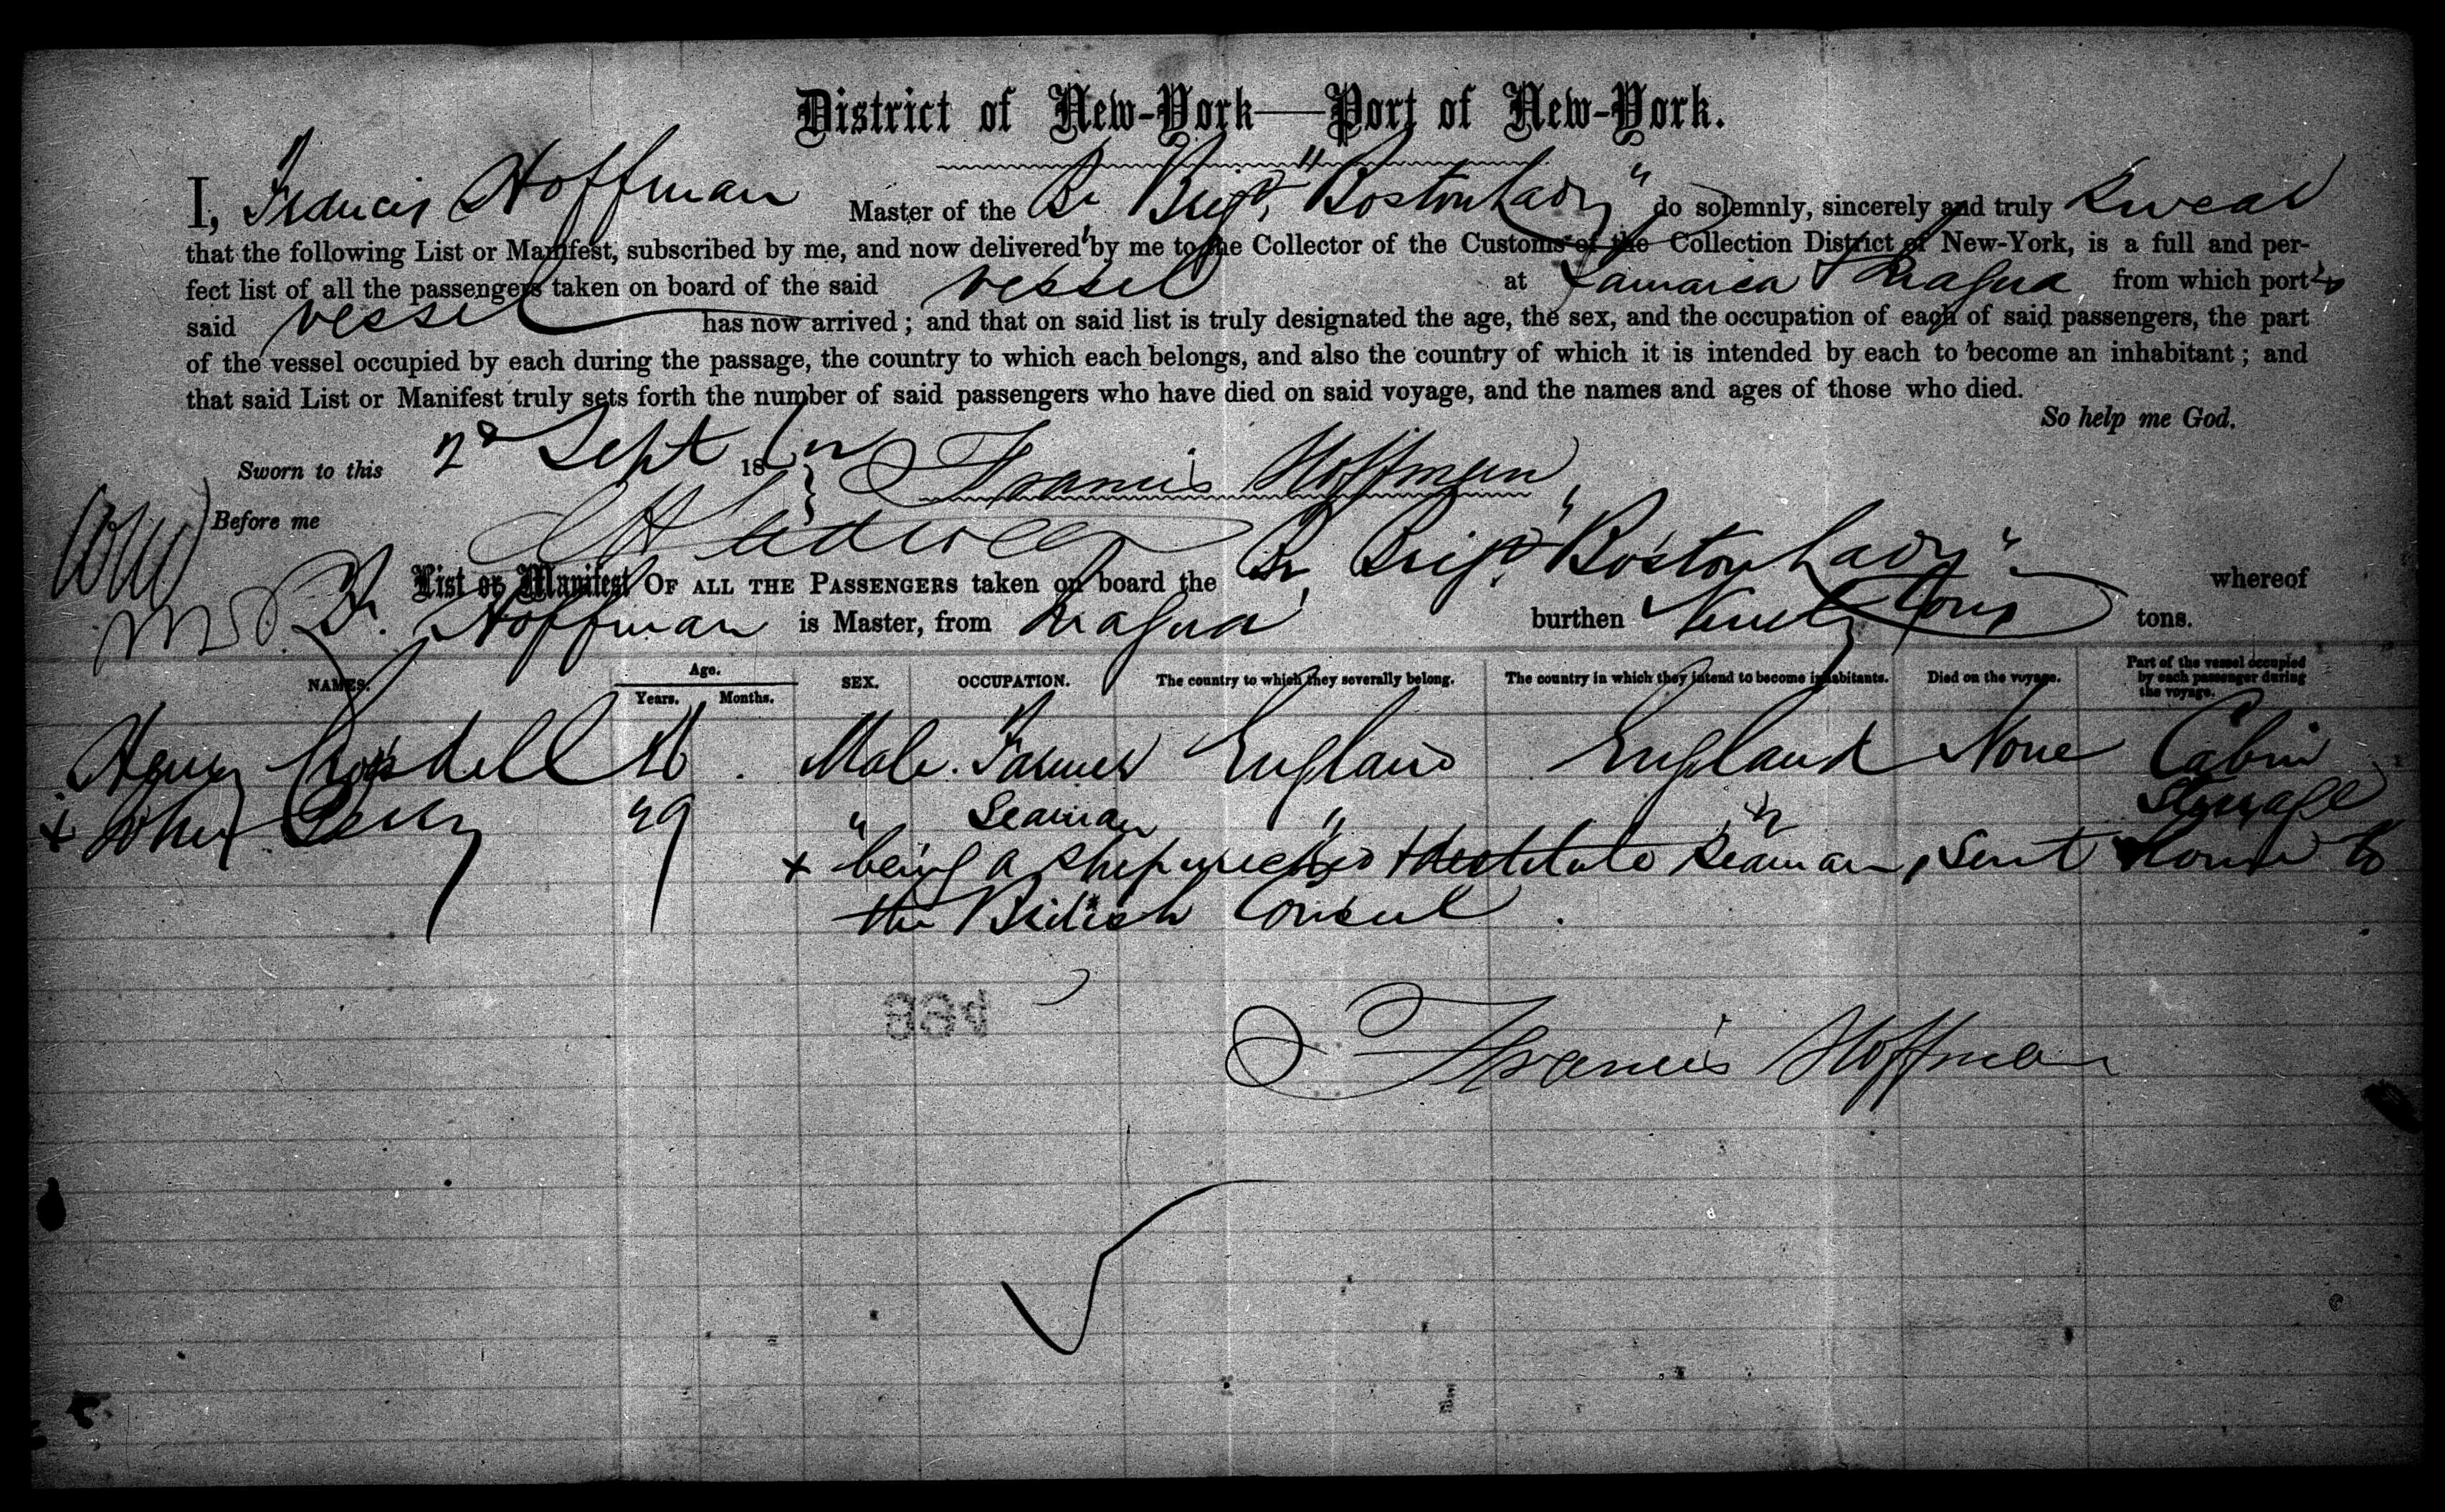 District of New-York—Port of New-York.
I, Francis Hoffman Master of the Br Brigt "Boston Lady" do solemnly, sincerely and truly Swear
that the following List or Manifest, subscribed by me, and now delivered by me to the Collector of the Customs of the Collection District of New-York, is a full and per-
fect list of all the passengers taken on board of the said vessel at Jamaica & Inagua from which ports
said vessel has now arrived; and that on said list is truly designated the age, the sex, and the occupation of each of said passengers, the part
of the vessel occupied by each during the passage, the country to which each belongs, and also the country of which it is intended by each to become an inhabitant; and
that said List or Manifest truly sets forth the number of said passengers who have died on said voyage, and the names and ages of those who died.
So help me God.
Sworn to this 2d Sept 18 Francis Hoffman
Before me
List or Manifest OF ALL THE PASSENGERS taken on board the Br. Brigt. "Boston Lady" whereof
F. Hoffman is Master, from Inagua burthen Ninety Tons tons.
NAMES. Age. Years. Months. SEX. OCCUPATION. The country to which they severally belong. The country in which they intend to become inhabitants. Died on the voyage. Part of the vessel occupied by each passenger during the voyage.
Henry Male. Farmer England England None Cabin
+ John 29 " Seaman " " Steerage
+ being a shipwrecked & destitute Seaman, sent home by
the British Consul.
Francis Hoffman